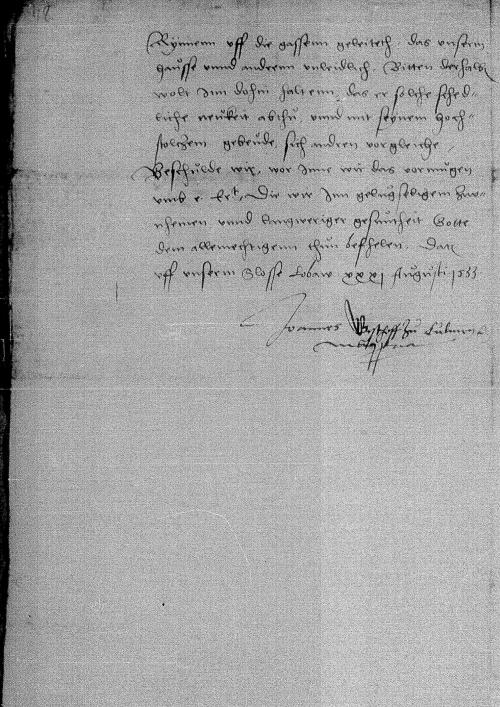 Rynnenn uff die gassenn geleiteth, das unserm
hausse unnd anderenn unleidlich. Bitten derhalb
wolt Im dohin haltenn, das er solche sched-
liche neukeit abthu unnd mit seynem hoch-
stolczem gebeude, sich andren vorgleiche,
Beschulde wir, wor Inne wir das vormugen
umb e. Er^t. Die wir Inn geluckseligem zu-
nhemen unnd langweriger gesuntheit Gotte
dem allmechtigenn thun befhelen. Datz
uff unserm Slosse Lobaw xxxi Augusti 1533
Joannes Bischoff zu Culmen